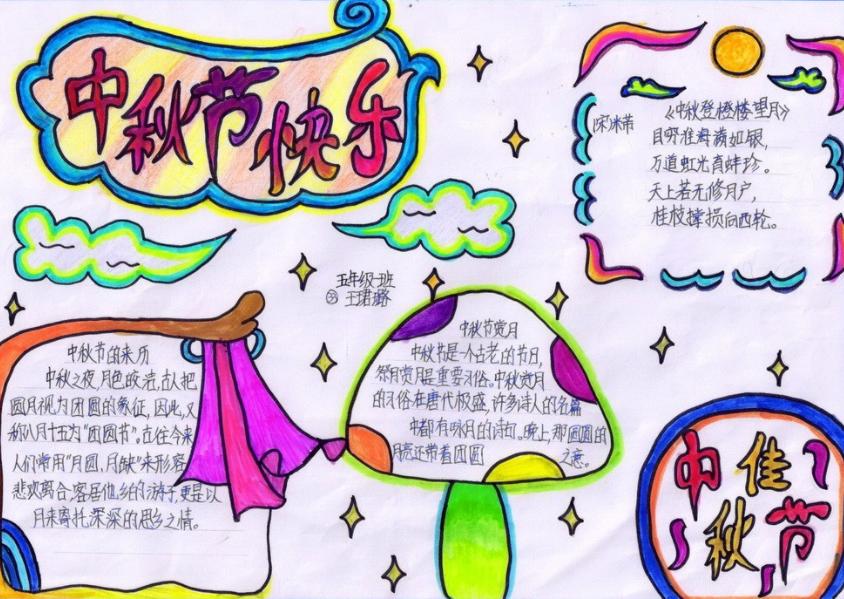 中秋节快乐
《中秋登楼望月》
宋 米芾
目穷淮海满如银,
万道虹光育蚌珍。
天上若无修月户,
桂枝撑损向西轮。
五年级一班
王珺璐
中秋节的来历
中秋之夜,月色皎洁,古人把
圆月视为团圆的象征,因此,又
称八月十五为“团圆节”。古往今来
人们常用“月圆、月缺”来形容
悲欢离合,客居他乡的游子,更是以
月来寄托深深的思乡之情。
中秋节赏月
中秋节是一个古老的节日,
祭月赏月是重要习俗。中秋赏月
的习俗在唐代极盛,许多诗人的名篇
中都有咏月的诗句。晚上,那圆圆的
月亮正带着团圆之意。
中秋佳节